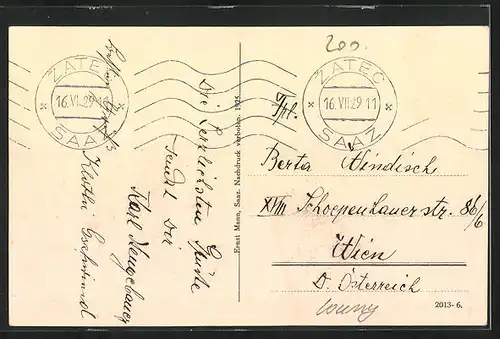 200.
ZATEC
16.VII.29 11
SAAZ
ZATEC
16.VII.29 11
SAAZ
Die herzlichsten Grüße
sendet Dir
Karl
Gschwind
Ernst Mann, Saaz. Nachdruck verboten. 1925.
Frl.
Berta Windisch
XVIII Schopenhauerstr. 86/6
Wien
D. Österreich
2013-6.